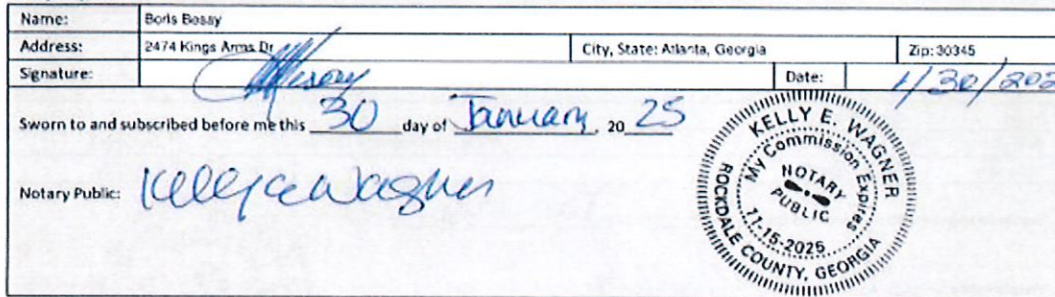 Name: Boris Bessy
Address: 2474 Kings Arms Dr City, State: Atlanta, Georgia Zip: 30345
Signature: Date: 1/30/202
Sworn to and subscribed before me this 30 day of January, 20 25
Notary Public: Kelly E Wagner
KELLY E. WAGNER
My Commission Expires
NOTARY
PUBLIC
11-15-2025
ROCKDALE COUNTY, GEORGIA